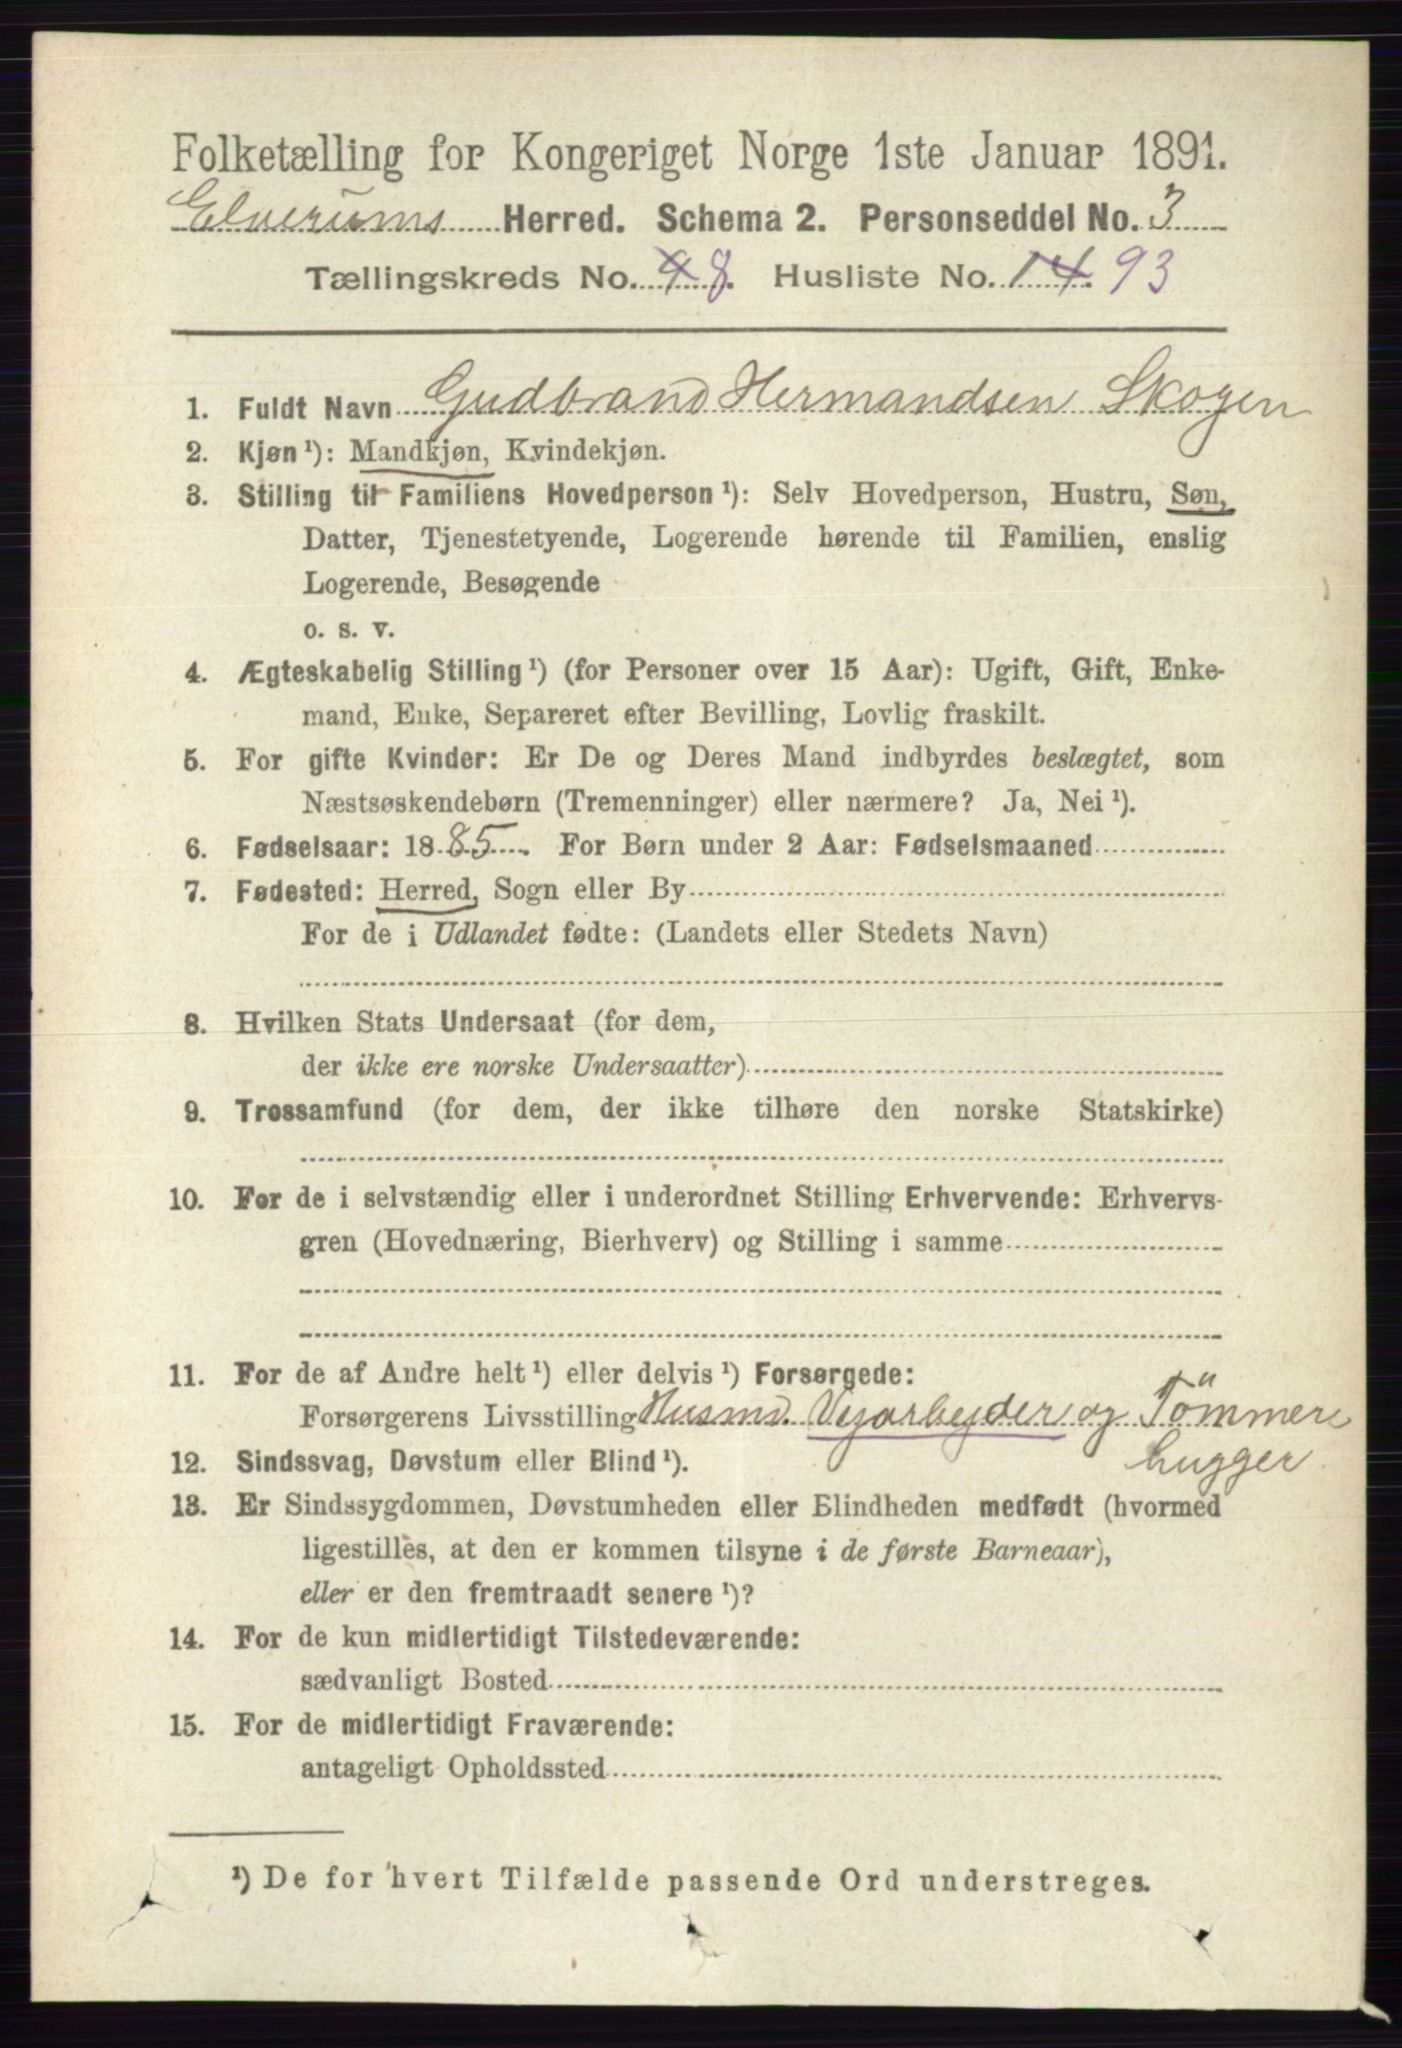 Folketælling for Kongeriget Norge 1ste Januar 1891.
Elverums Herred. Schema 2. Personseddel No. 3
Tællingskreds No. 8. Husliste No. 14. 93
1. Fuldt Navn Gudbrand Hermandsen Skogen
2. Kjøn ¹): Mandkjøn, Kvindekjøn.
3. Stilling til Familiens Hovedperson ¹): Selv Hovedperson, Hustru, Søn,
Datter, Tjenestetyende, Logerende hørende til Familien, enslig
Logerende, Besøgende
o. s. v.
4. Ægteskabelig Stilling ¹) (for Personer over 15 Aar): Ugift, Gift, Enke-
mand, Enke, Separeret efter Bevilling, Lovlig fraskilt.
5. For gifte Kvinder: Er De og Deres Mand indbyrdes beslægtet, som
Næstsøskendebørn (Tremenninger) eller nærmere? Ja, Nei ¹).
6. Fødselsaar: 1885. For Børn under 2 Aar: Fødselsmaaned
7. Fødested: Herred, Sogn eller By
For de i Udlandet fødte: (Landets eller Stedets Navn)
8. Hvilken Stats Undersaat (for dem,
der ikke ere norske Undersaatter)
9. Trossamfund (for dem, der ikke tilhøre den norske Statskirke)
10. For de i selvstændig eller i underordnet Stilling Erhvervende: Erhvervs-
gren (Hovednæring, Bierhverv) og Stilling i samme
11. For de af Andre helt ¹) eller delvis ¹) Forsørgede:
Forsørgerens Livsstilling Husmd. Vejarbejder og Tömmer
hugger
12. Sindssvag, Døvstum eller Blind ¹).
13. Er Sindssygdommen, Døvstumheden eller Blindheden medfødt (hvormed
ligestilles, at den er kommen tilsyne i de første Barneaar),
eller er den fremtraadt senere ¹)?
14. For de kun midlertidigt Tilstedeværende:
sædvanligt Bosted
15. For de midlertidigt Fraværende:
antageligt Opholdssted
¹) De for hvert Tilfælde passende Ord understreges.